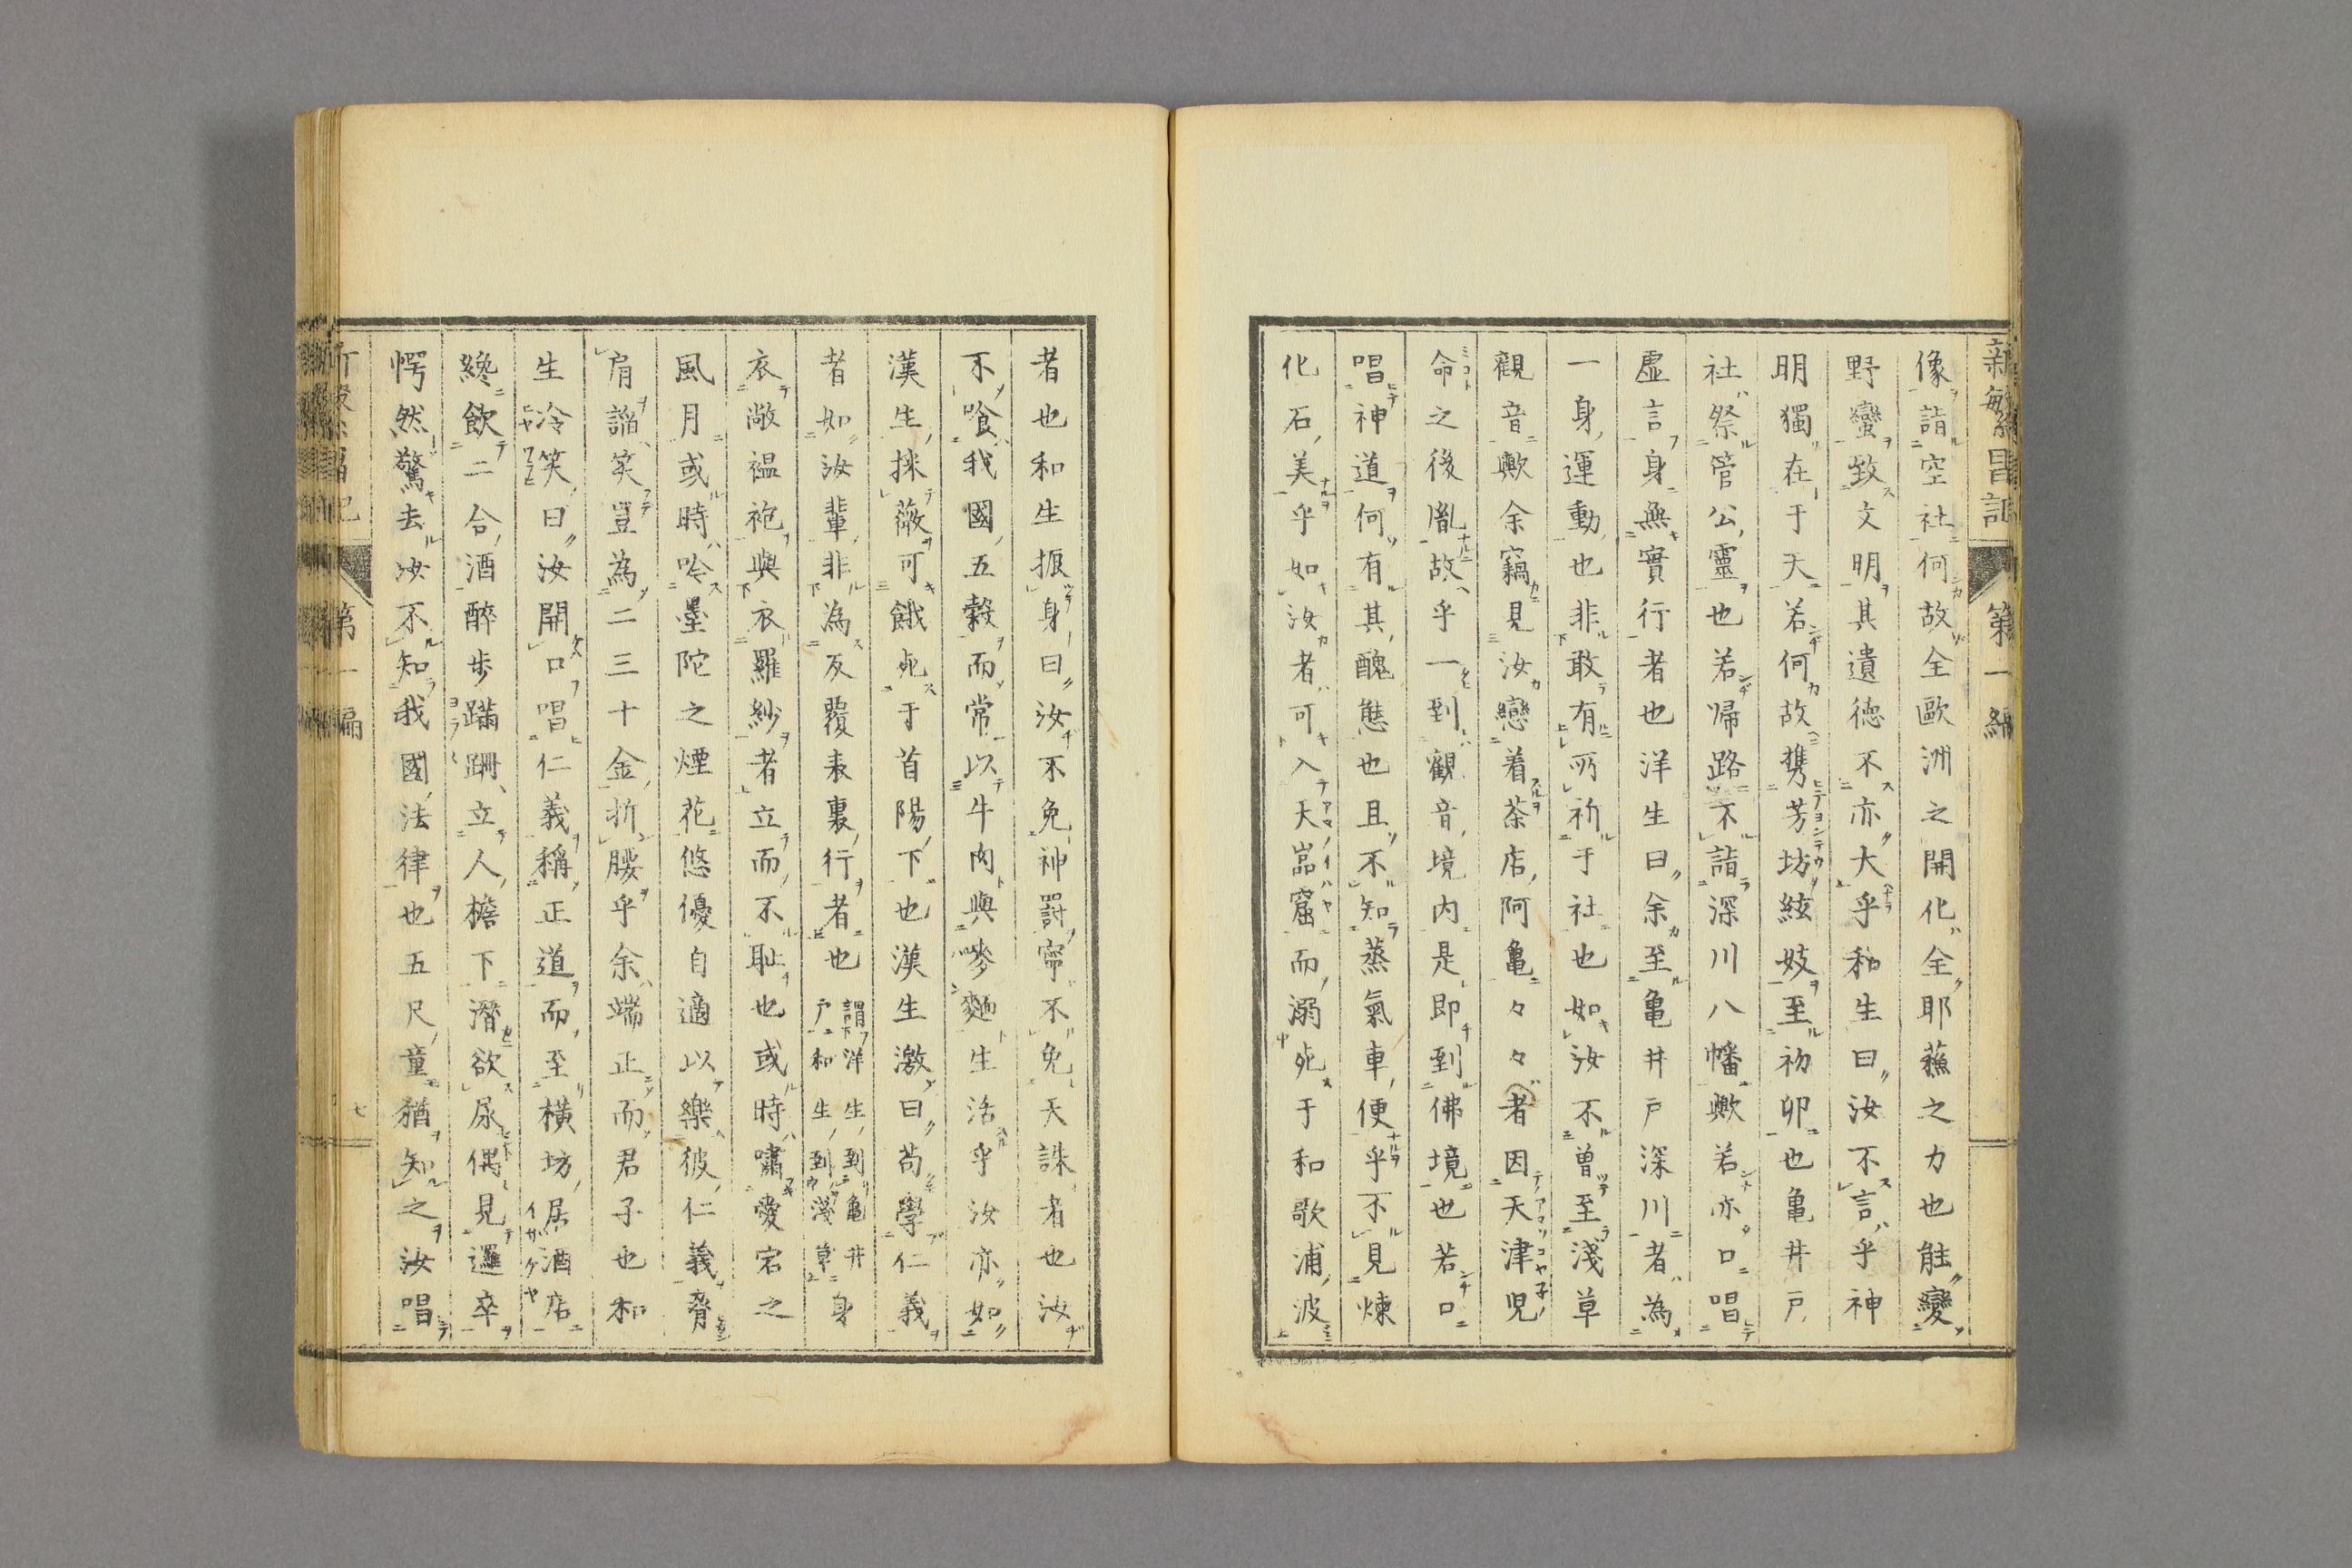 新繁昌記 第一編
像詣空社何故全歐洲之開化全耶蘇之力也能變
野蠻致文明其遺徳不亦大乎和生曰汝不言乎神
明獨在于天若何故携芳坊絃妓至初卯也亀井戸
社祭管公靈也若帰路不詣深川八幡歟若亦口唱
虚言身無實行者也洋生曰余至亀井戸深川者為
一身運動也非敢有所祈于社也如汝不曽至淺草
觀音歟余竊見汝戀着茶店阿亀々々者因天津児
命之後胤故乎一到觀音境内是即到佛境也若口
唱神道何有其醜態也且不知蒸氣車便乎不見煉
化石美乎如汝者可入天嵓窟而溺死于和歌浦波
者也和生振身曰汝不免神罸寧不免天誅者也汝
不喰我國五穀而常以牛肉與麥麺生活乎汝亦如
漢生採薇可餓死于首陽下也漢生激曰苟學仁義
者如汝輩非為反覆表裏行者也謂洋生到亀井戸和生到淺草身
衣敞褞袍與衣羅紗者立而不耻也或時嘯愛宕之
風月或時吟墨陀之煙花悠優自適以樂彼仁義脅
肩諂笑豈為二三十金折腰乎余端正而君子也和
生冷笑曰汝開口唱仁義稱正道而至横坊居酒店
纔飲二合酒醉歩蹣跚立人檐下潛欲尿偶見邏卒
愕然驚去汝不知我國法律也五尺童猶知之汝唱
第一編
七